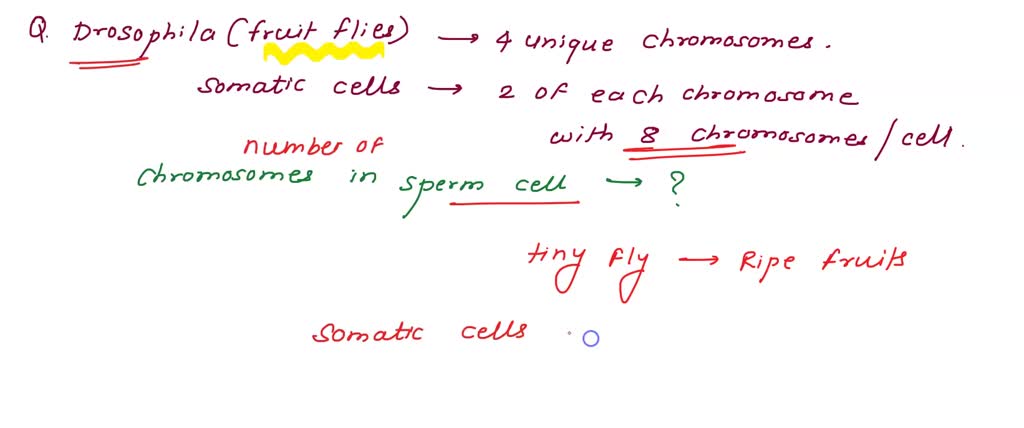 Q. Drosophila (fruit flies) → 4 unique chromosomes.
Somatic cells → 2 of each chromosome
with 8 chromosomes / cell.
number of
chromosomes in sperm cell → ?
tiny fly → Ripe fruits
Somatic cells